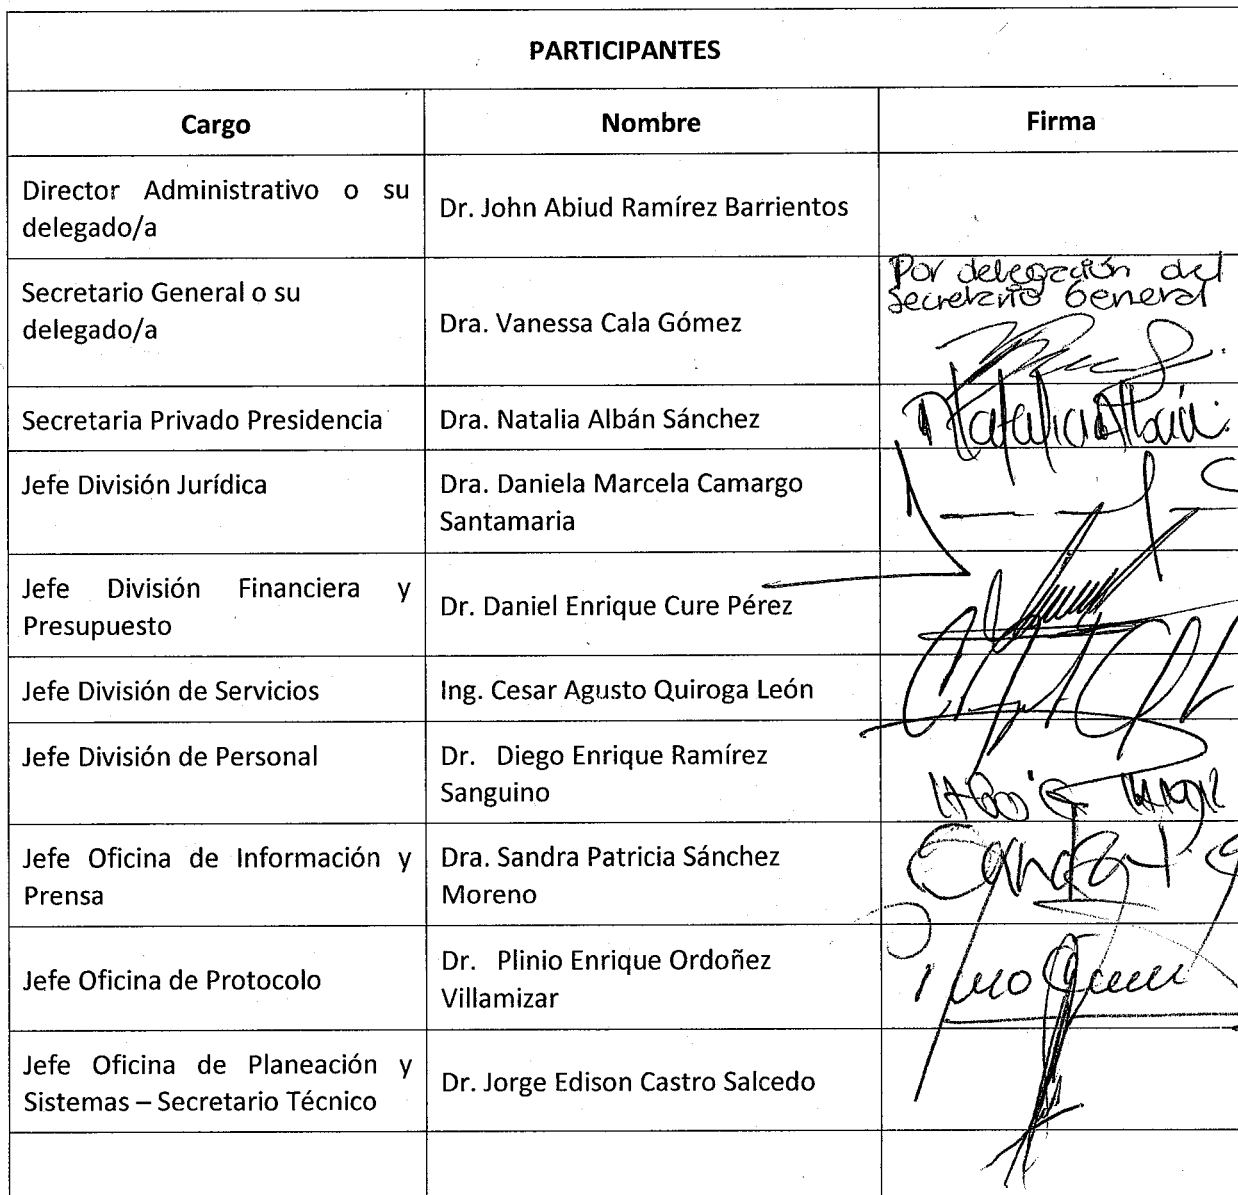 PARTICIPANTES
Cargo Nombre Firma
Director Administrativo o su
delegado/a
Dr. John Abiud Ramírez Barrientos
Secretario General o su
delegado/a
Dra. Vanessa Cala Gómez
Por delegación del
Secretario General
Secretaria Privado Presidencia
Dra. Natalia Albán Sánchez
Natalia Albán
Jefe División Jurídica
Dra. Daniela Marcela Camargo
Santamaria
Jefe División Financiera y
Presupuesto
Dr. Daniel Enrique Cure Pérez
Jefe División de Servicios
Ing. Cesar Agusto Quiroga León
Jefe División de Personal
Dr. Diego Enrique Ramírez
Sanguino
Jefe Oficina de Información y
Prensa
Dra. Sandra Patricia Sánchez
Moreno
Jefe Oficina de Protocolo
Dr. Plinio Enrique Ordoñez
Villamizar
Jefe Oficina de Planeación y
Sistemas – Secretario Técnico
Dr. Jorge Edison Castro Salcedo